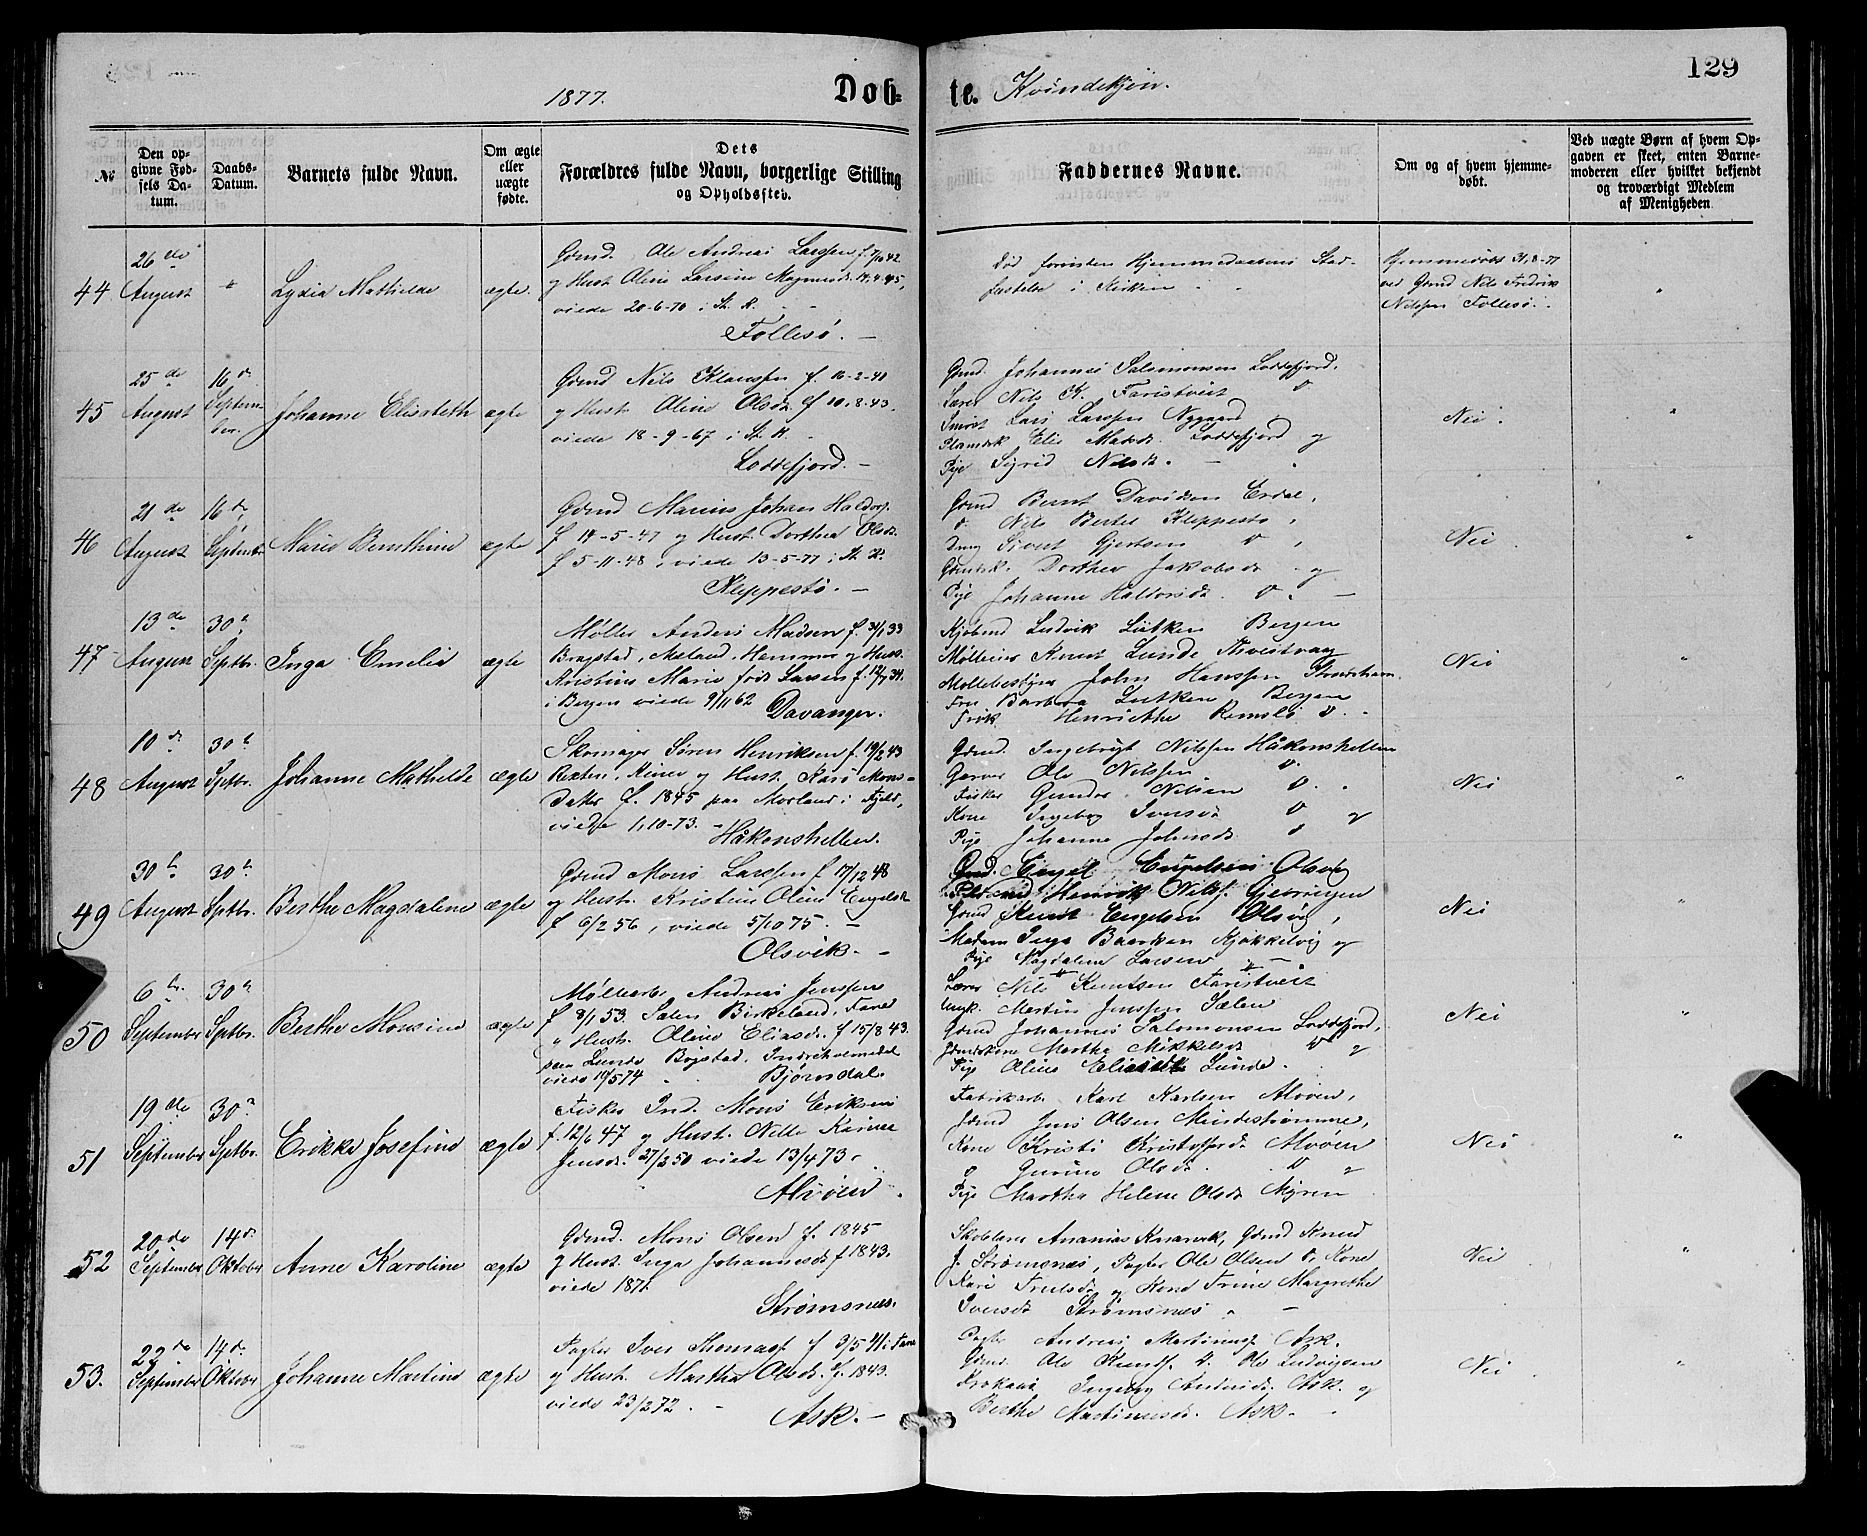 129
1877.
Döb- te. Kvindekjøn.
№
Den opgivne Fødsels Datum.
Daabs-Datum.
Barnets fulde Navn.
Om ægte eller uægte fødte.
Dets Forældres fulde Navn, borgerlige Stilling og Opholdssted.
Faddernes Navne.
Om og af hvem hjemmedøbt.
Ved uægte Børn af hvem Opgaven er skeet, enten Barnemoderen eller hvilket bekjendt og troværdigt Medlem af Menigheden
44
26 de August
"
Lydia Mathilde
ægte.
Gdmd. Ole Andreas Larssen f. 7/10 42
g Hust. Oline Larsine Magnusd. 14-4-45,
viede 20-6-70 i St. K.
Follesø. —
Død forinden Hjemmedaabens Stad-
fæstelse i Kirken
Hjemmedøbt 31-8-77
ved Gmd Nils Fredrik
Nilssen Follesø.
"
45
25 de August
16 de September
Johanne Elisabeth
ægte
Gdmd Nils Klaussen f. 16-2-40
g Hust. Oline Olsd. f 10-8-43.
viede 18-9-67 i St. K.
Loddefjord. —
Gmd. Johannes Salomonsen Loddefjord.
Lærer Nils K. Faristveit
Lars Larssen Nygaard
Elis Madsd. Loddefjord g
Pige Sigrid Nilsd.
Nei.
"
46
21 de August
16 de September
Marie Bernthine
ægte
Gdmd Marius Johan Haldors.
f 14-5-47 g Hust. Dorthea Olsd.
f 5-11-48, viede 13-5-77 i St. K.
Kleppestø. —
Gdmd Bernt Davidsen Erdal,
Nils Bertel Kleppestø,
Sivert Gjertsen
Dorthea Jakobsd. g
Pige Johanne Haldorsd. —
Nei
"
47
13 de August
30 Septbr.
Inga Emelie
ægte
Møller Anders Madsen f. 31/1 33
Hammer g Hust.
Kristine Marie født Larsen f. 12/7 34.
i Bergen viede 9/11 62
Davanger.
Ludvik Lütken Bergen
Knut Lunde
Møllebestyrer John Hanssen
Fru Barbara Lütken Bergen
Frøk. Henriethe
Nei
"
48
10 de August
30 Septbr.
Johanne Mathilde
ægte
Skomager Søren Henriksen f. 19/2 43
g Hust. Kari Mons-
Datter f. 1845 paa Morland i Fjeld,
viede 1/10-73.
Håkonshellen.
Gdmd. Ingebrigt Nilssen Håkonshellen
Garver Ole Nilssen
Fisker Gunder Nilsen
Kone Ingeborg Iversd. g
Pige Johanne Johnsd.
Nei
"
49
30 August
30 Septbr.
Berthe Magdalene
ægte
Gdmd Mons Larssen f 17/12 48
g Hust. Kristine Oline Engelsd.
f 6/2 56, viede 5/10 75. —
Olsvik. —
Gmd. Engel Engelsen Olsvig
Henrik Nils. Gjevringen
Gdmd Knut Engelsen Olsvig,
Madam Inga Kjøkkelvig g
Pige Magdalene Larsen —
Nei
"
50
6 September
30 Septbr.
Berthe Monsine
ægte
Møllearb. Andreas Jenssen
f 8/1 53. Sælen Birkeland, Fane
g Hust. Oline Eliasd. f 15/8 43.
paa Lunde
viede 19/5 74
Bjørndal.
Lærer Nils Knutsen Faristveit
Ungk. Martin Jenssen Sælen
Gdmd Johannes Salomonsen Loddefjord,
Martha Mikkelsd. g
Pige Oline Eliasd. Lunde.
Nei
"
51
19 de September
30 Septbr.
Erikke Josefine
ægte
Fisker Ind. Mons Eriksen
f. 12/6 47 g Hust. Nille Karine
Jensd. 27/2 50 viede 13/4 73.
Alvøen.
Fabrikarb. Karl Karlsen Alvøen,
Gdmd Jens Olsen
Kone Kristi Kristofferd. Alvøen
Gurine Olsd. g
Pige Martha Helene Olsd. Myren
Nei
"
52
20 de September
14 de Oktober
Anne Karoline
ægte
Gdmd. Mons Olsen f. 1845
g Hust. Inga Johannesd f 1843.
viede 1871
Strømsnes.
Ananias Knarvik, Gdmd Knud
J. Strømsnes, Pagter Ole Olsen Kone
Kari Trulsd. g Kone Trine Margrethe
Iversd. Strømsnes —
Nei
"
53.
22 de September
14 de Oktober
Johanne Martine
ægte
Pagter Iver Thomas. f 3/5 41 i Fane
g Hust. Martha Olsd. f. 1843.
viede 23/3 72. —
Ask. —
Pagter Andreas Martinus. Ask.
Gdmd. Ole Knuds. Ole Ludvigsen
Ingeborg Andersd. Ask. g
Berthe Martinusd. Ask. —
Nei
"